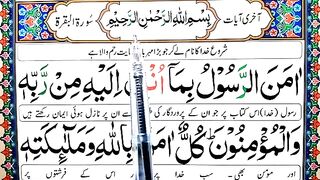 آخری آیات بِسْمِ اللّٰهِ الرَّحْمٰنِ الرَّحِيْمِ سُورَة الْبَقَرَة
شروع خدا کا نام لے کر جو بڑا رحم والا ہے
اٰمَنَ الرَّسُوْلُ بِمَاۤ اِلَيْهِ مِنْ رَّبِّهٖ
رسول (خدا) اس کتاب پر جو ان کے پروردگار کی سے ان پر نازل ہوئی ایمان رکھتے ہیں
وَالْمُؤْمِنُوْنَ ؕ كُلٌّ اٰمَنَ بِاللّٰهِ وَمَلٰٓئِكَتِهٖ
اور مومن بھی۔ اور اس کے فرشتوں پر